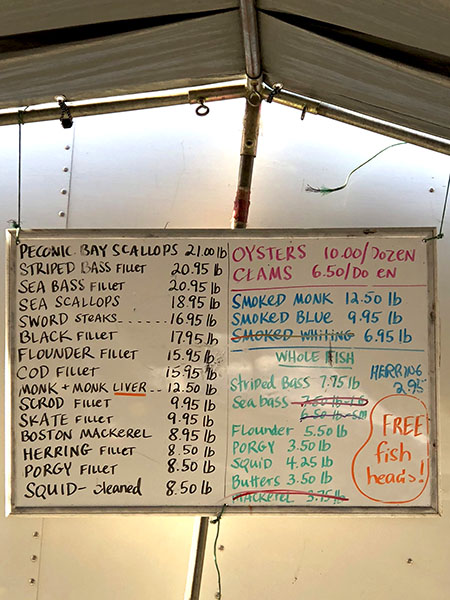 PECONIC BAY SCALLOPS 21.00 lb
STRIPED BASS Fillet 20.95 lb
SEA BASS Fillet 20.95 lb
SEA SCALLOPS 18.95 lb
SWORD STEAKS 16.95 lb
BLACK Fillet 17.95 lb
FLOUNDER Fillet 15.95 lb
COD Fillet 15.95 lb
MONK + MONK LIVER -- 12.50 lb
SCROD Fillet 9.95 lb
SKATE Fillet 9.95 lb
BOSTON MACKEREL 8.95 lb
HERRING Fillet 8.50 lb
PORGY Fillet 8.50 lb
SQUID - cleaned 8.50 lb
OYSTERS 10.00/DOZEN
CLAMS 6.50/DO EN
SMOKED MONK 12.50 lb
SMOKED BLUE 9.95 lb
SMOKED WHITING 6.95 lb
WHOLE FISH
Striped Bass 7.75 lb
Sea bass
6.50 lb-sm
Flounder 5.50 lb
PORGY 3.50 lb
SQUID 4.25 lb
Butters 3.50 lb
MACKEREL 3.75 lb
HERRING
2.95
FREE
fish
heads!